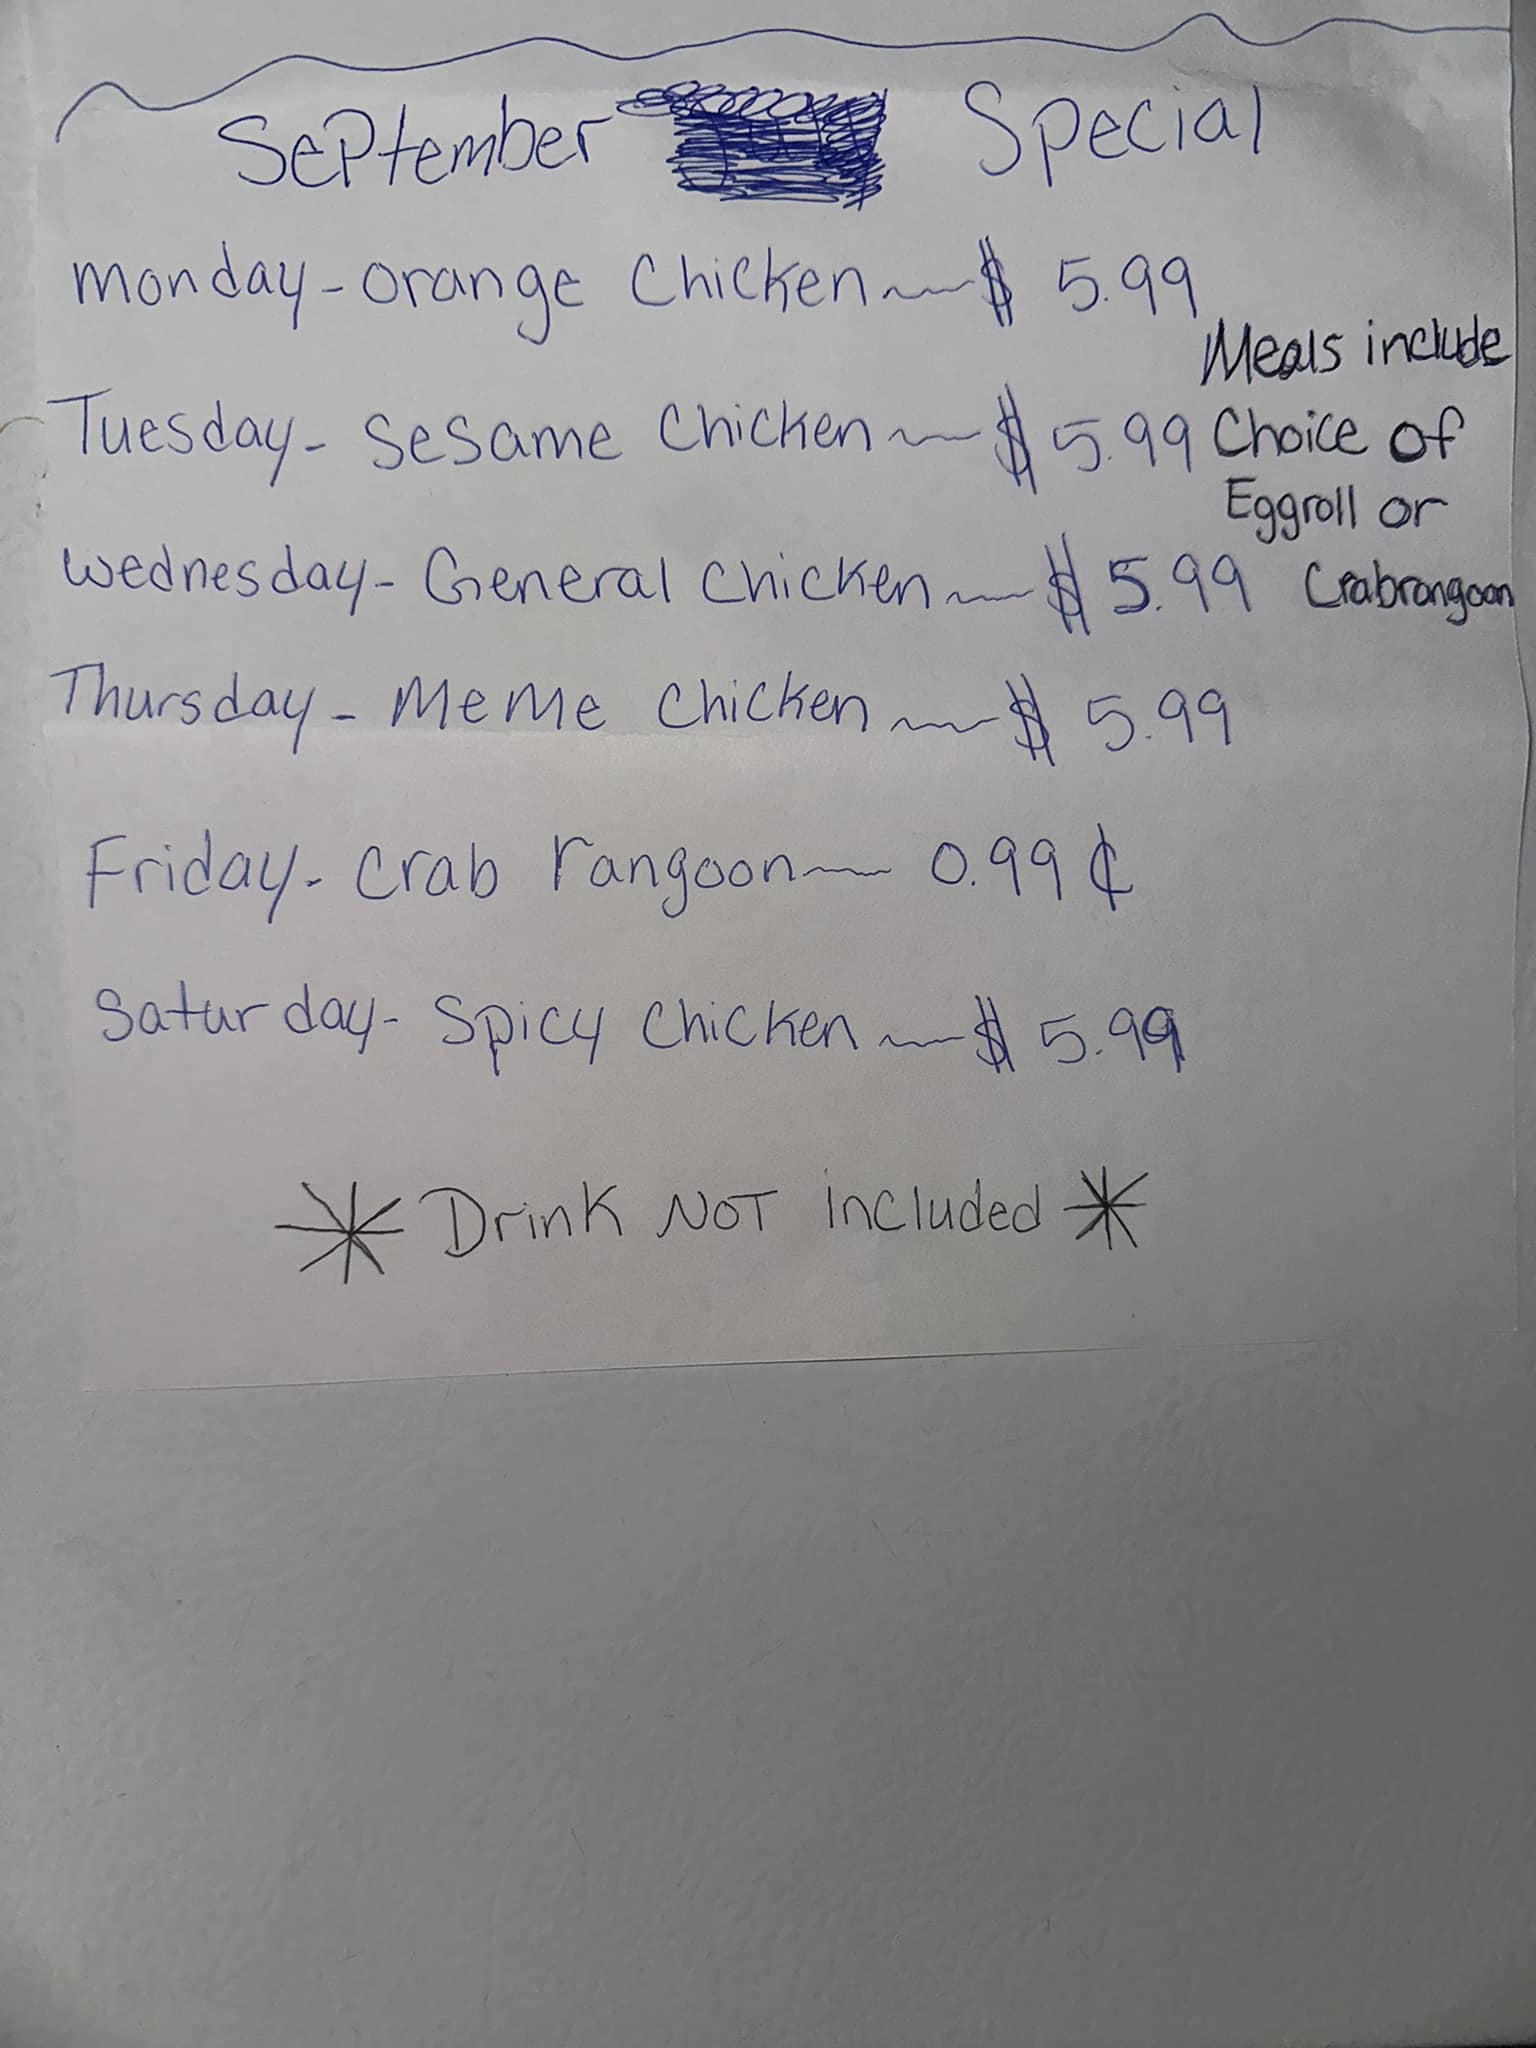 September Special
monday - orange Chicken ~ $ 5.99
Tuesday - Sesame Chicken ~ $ 5.99
Wednesday - General Chicken ~ $ 5.99
Thursday - MeMe Chicken ~ $ 5.99
Friday - Crab rangoon ~ 0.99 ¢
Saturday - Spicy Chicken ~ $ 5.99
Meals include
Choice of
Eggroll or
Crabrangoon
* Drink NOT included *